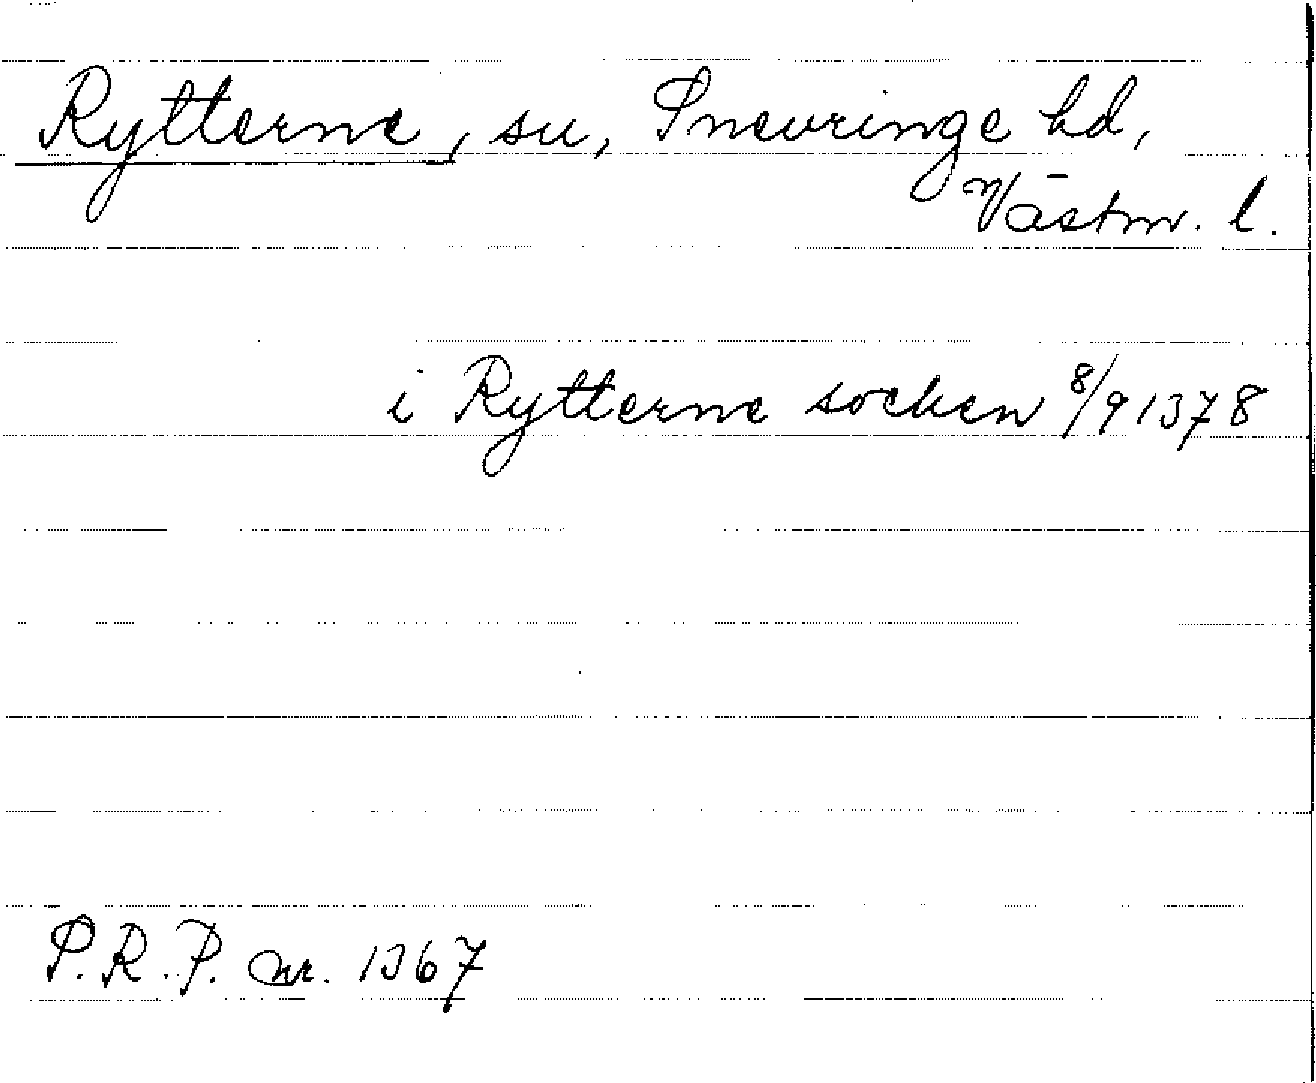 Rytterne, sn, Snevringe hd,
Västm. l.
i Rytterne socken 8/9 1378
S.R.P. nr. 1367